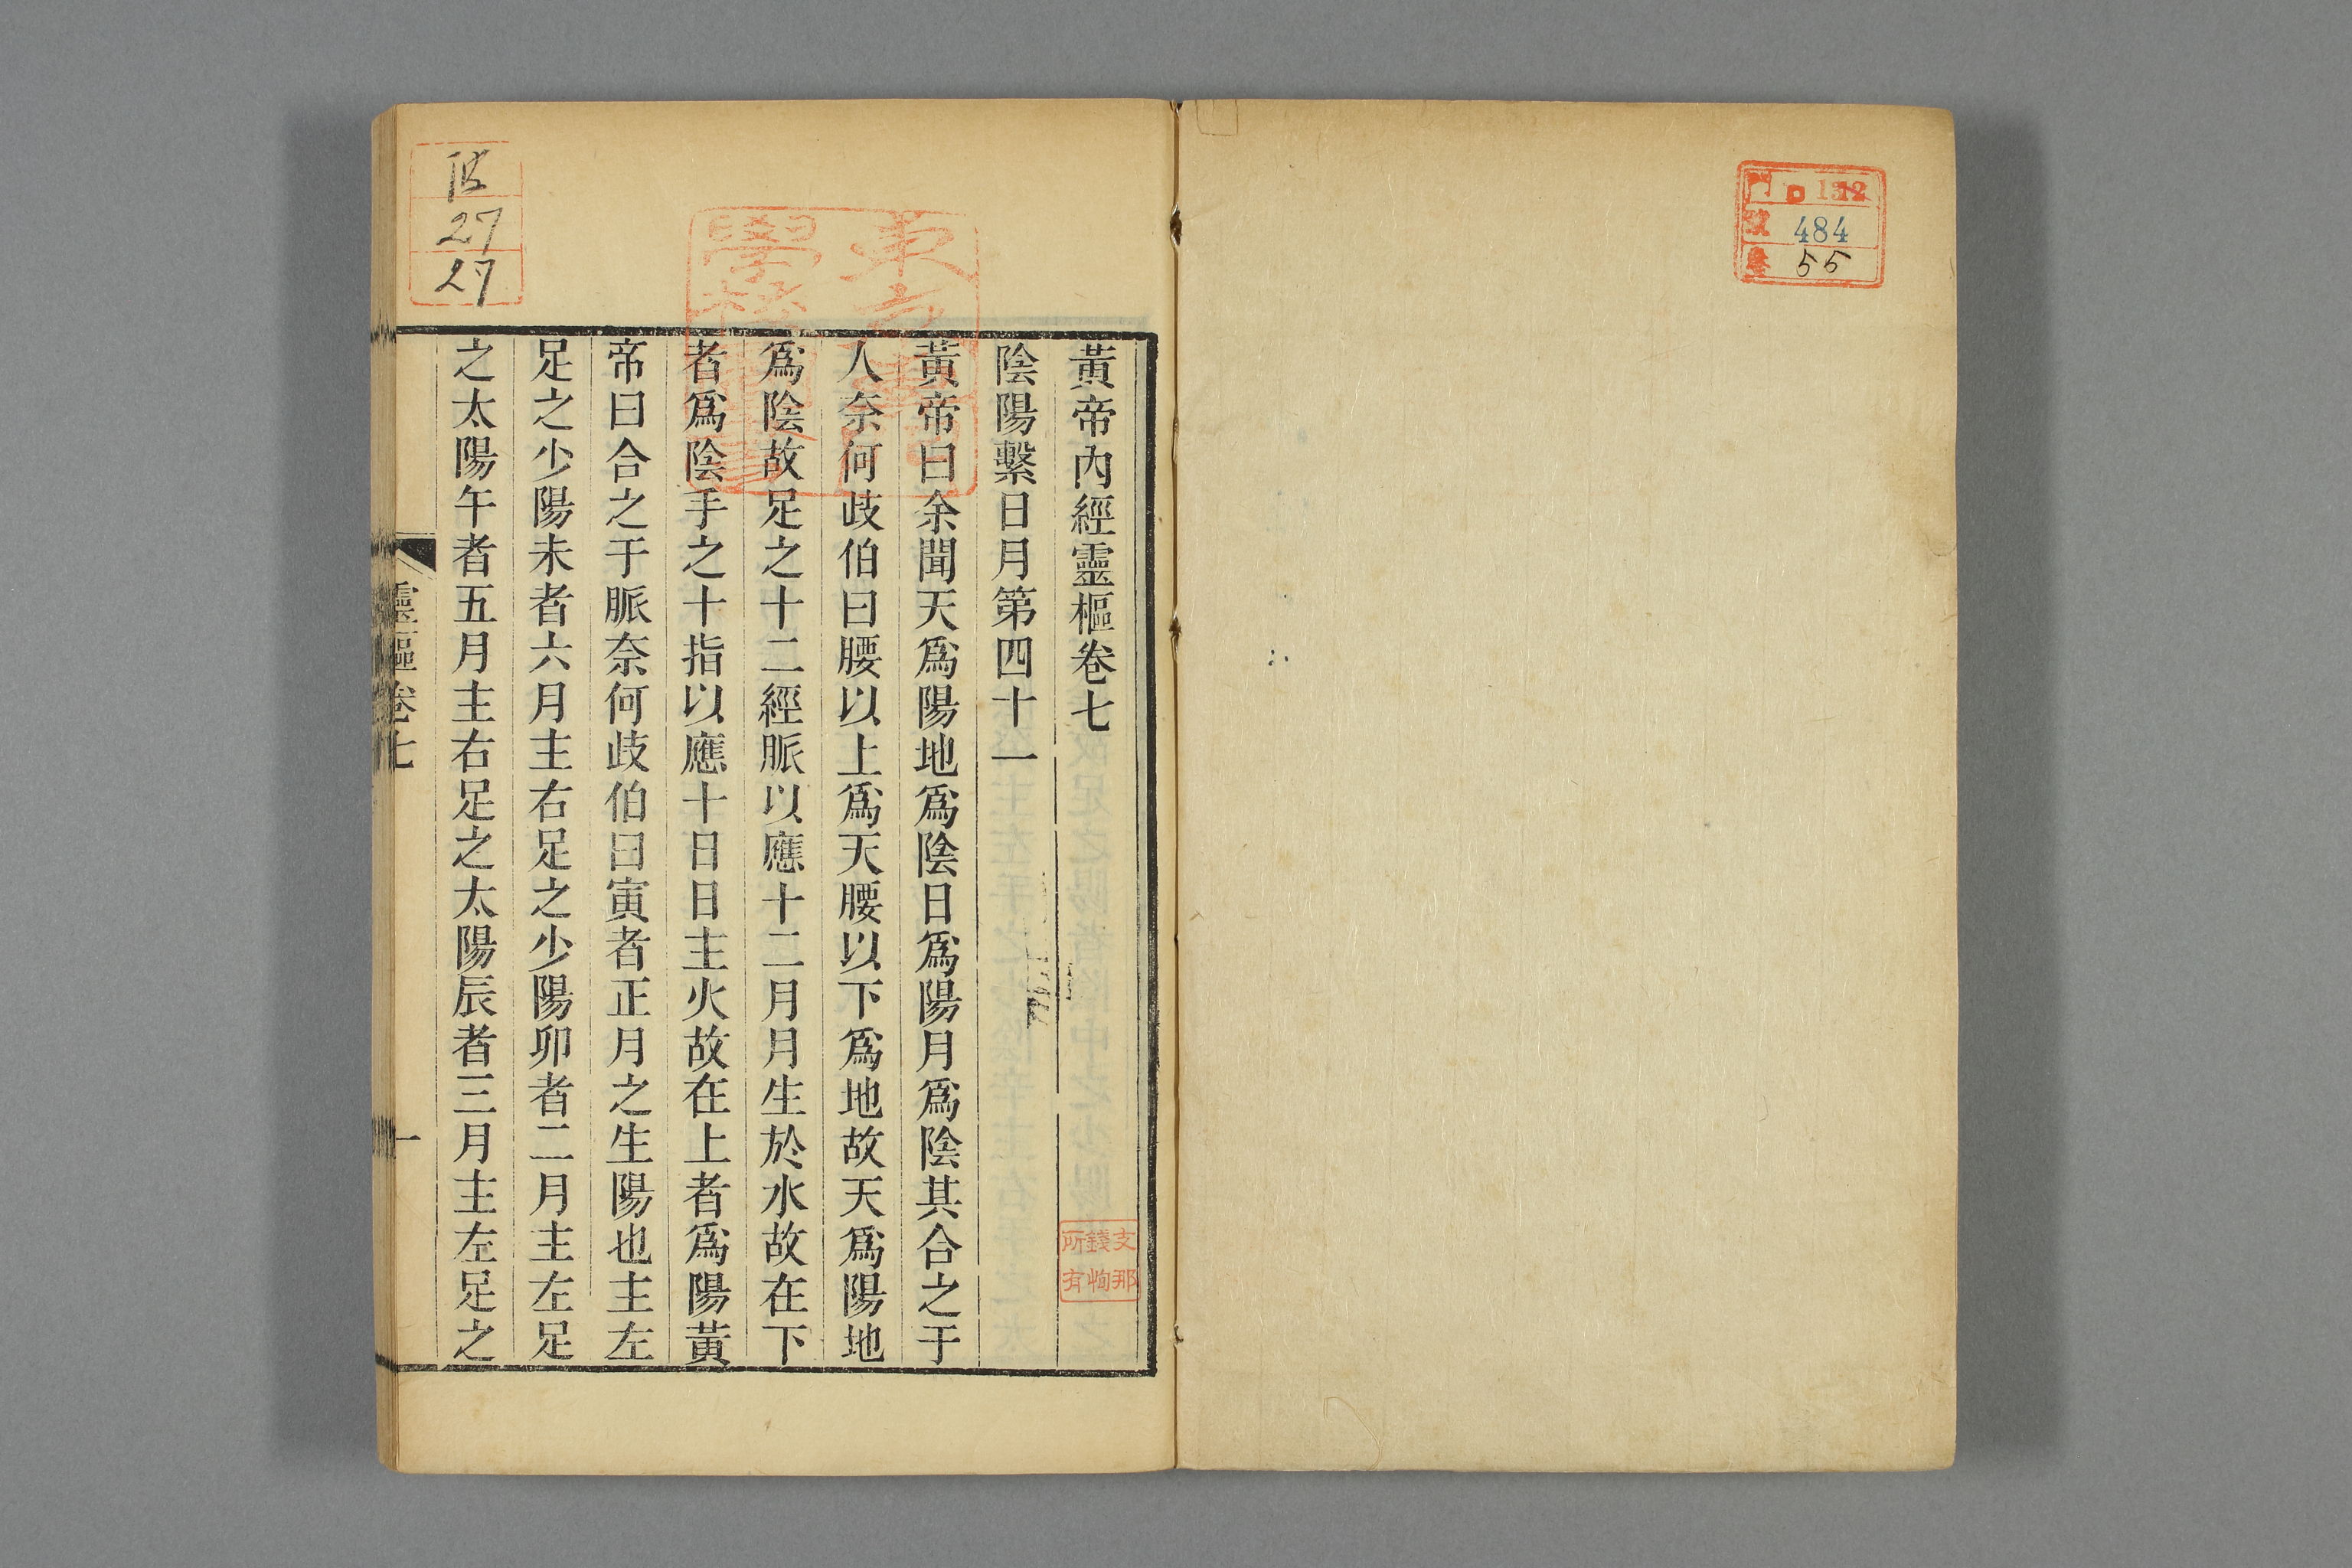 門 口 132
號 484
55
黃帝內經靈樞卷七
支那
錢恂
所有
陰陽繫日月第四十一
黃帝曰余聞天爲陽地爲陰日爲陽月爲陰其合之于
人奈何歧伯曰腰以上爲天腰以下爲地故天爲陽地
爲陰故足之十二經脈以應十二月月生於水故在下
者爲陰手之十指以應十日日主火故在上者爲陽黃
帝曰合之于脈奈何歧伯曰寅者正月之生陽也主左
足之少陽未者六月主右足之少陽卯者二月主左足
之太陽午者五月主右足之太陽辰者三月主左足之
靈樞卷七
一
27
27